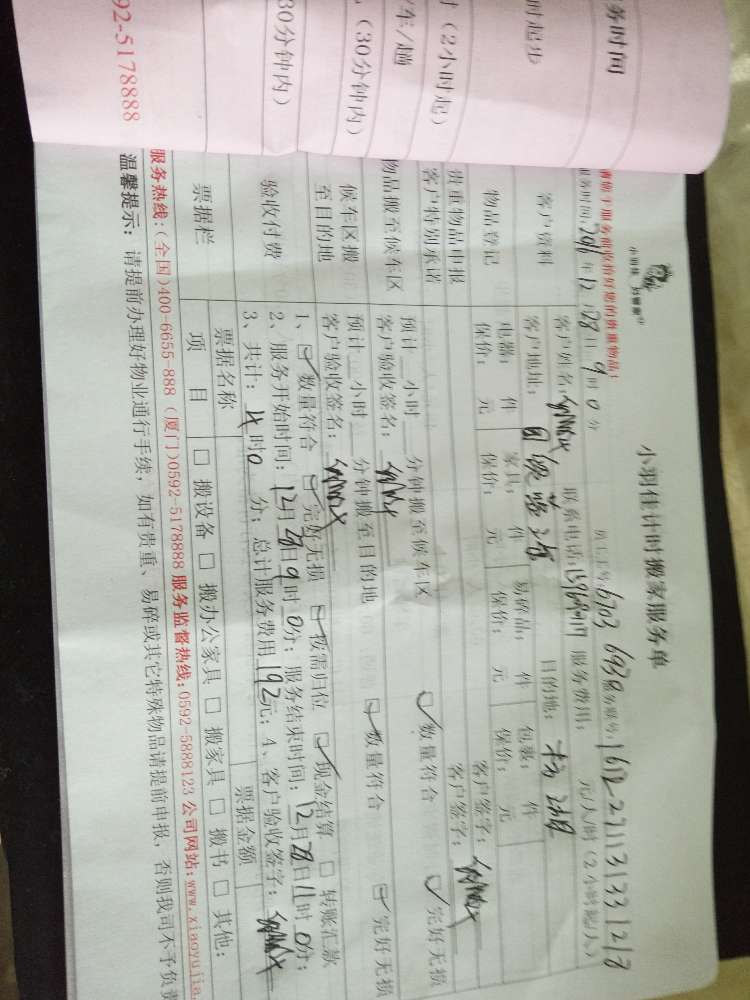 务时间
时起步
时（2小时起）
车/趟
（30分钟内）
30分钟内）
92-5178888
小羽佳计时搬家服务单
小羽佳 好管家
请给予服务前收拾好您的贵重物品：
服务时间：2016年12月28日9时0分
员工工号：6703 6939 服务票号：
客户资料
客户姓名：
联系电话：
服务费用： 元/人/时（2小时起/人）
客户地址：
目的地：
物品登记
电器： 件 家具： 件 易碎品： 件 包裹： 件
保价： 元 保价： 元 保价： 元 保价： 元
贵重物品申报
客户签字：
客户特别承诺
客户签字：
物品搬至候车区
预计 小时 分钟搬至候车区 数量符合 完好无损
客户验收签名：
候车区搬至目的地
预计 小时 分钟搬至目的地 数量符合 完好无损
客户验收签名：
验收付费
1、数量符合 完好无损 按需归位 现金结算 转账汇款
2、服务开始时间：12月28日9时0分；服务结束时间：12月28日11时0分；
3、共计：4时0分；总计服务费用192元；4、客户验收签字：
票据栏
票据名称 票据金额
项目 搬设备 搬办公家具 搬家具 搬书 其他：
服务热线：（全国）400-6655-888（厦门）0592-5178888 服务监督热线：0592-5888123 公司网站：www.xiaoyujia.
温馨提示：请提前办理好物业通行手续，如有贵重、易碎或其它特殊物品请提前申报，否则我司不予负责